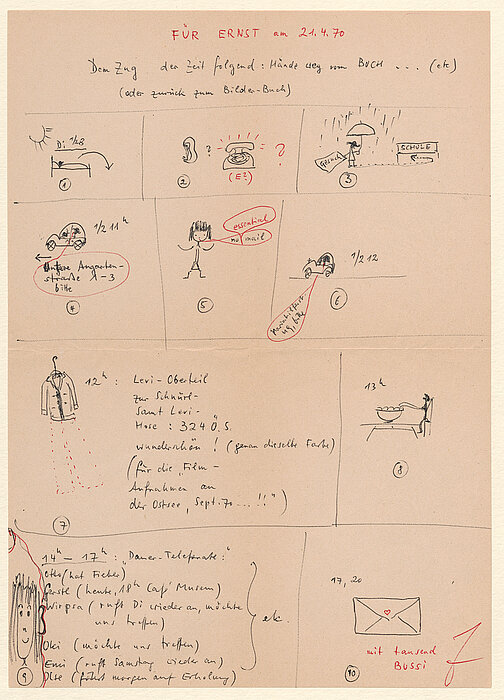 FÜR ERNST am 21.4.70
Dem Zug der Zeit folgend: Hände weg vom BUCH ... (etc)
(oder zurück zum Bilder-Buch)
Di 1/2 8
1
? = ?
(E?)
2
SCHULE
3
1/2 11ʰ
Untere Augarten-
straße 1-3
bitte
4
essential
no mail
5
1/2 12
bitte
6
12ʰ : Levi-Oberteil
zur Schnürl-
Samt Levi-
Hose : 324 Ö.S.
wunderschön ! (genau dieselbe Farbe)
(für die „Film-
Aufnahmen an
der Ostsee, Sept. 70 ...!!")
7
13ʰ
8
14ʰ - 17ʰ : „Dauer-Telefonate:"
Otto (hat Fieber)
Gerstl (heute, 18ʰ Café Museum)
(ruft Di wieder an, möchte
uns treffen)
etc.
Oki (möchte uns treffen)
Emi (ruft Samstag wieder an)
Ilse (fährt morgen auf Erholung)
9
17,20
mit tausend
BUSSI
10